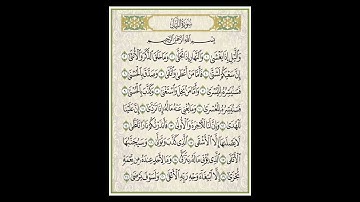 سُورَةُ اللَّيْلِ
بِسْمِ اللَّهِ الرَّحْمَٰنِ الرَّحِيمِ
وَاللَّيْلِ إِذَا يَغْشَىٰ ١ وَالنَّهَارِ إِذَا تَجَلَّىٰ ٢ وَمَا خَلَقَ الذَّكَرَ وَالْأُنثَىٰ ٣
إِنَّ سَعْيَكُمْ لَشَتَّىٰ ٤ فَأَمَّا مَنْ أَعْطَىٰ وَاتَّقَىٰ ٥ وَصَدَّقَ بِالْحُسْنَىٰ ٦
فَسَنُيَسِّرُهُ لِلْيُسْرَىٰ ٧ وَأَمَّا مَنْ بَخِلَ وَاسْتَغْنَىٰ ٨ وَكَذَّبَ بِالْحُسْنَىٰ ٩
فَسَنُيَسِّرُهُ لِلْعُسْرَىٰ ١٠ وَمَا يُغْنِي عَنْهُ مَالُهُ إِذَا تَرَدَّىٰ ١١ إِنَّ عَلَيْنَا
لَلْهُدَىٰ ١٢ وَإِنَّ لَنَا لَلْآخِرَةَ وَالْأُولَىٰ ١٣ فَأَنذَرْتُكُمْ نَارًا تَلَظَّىٰ ١٤
لَا يَصْلَاهَا إِلَّا الْأَشْقَى ١٥ الَّذِي كَذَّبَ وَتَوَلَّىٰ ١٦ وَسَيُجَنَّبُهَا
الْأَتْقَى ١٧ الَّذِي يُؤْتِي مَالَهُ يَتَزَكَّىٰ ١٨ وَمَا لِأَحَدٍ عِندَهُ مِن نِّعْمَةٍ
تُجْزَىٰ ١٩ إِلَّا ابْتِغَاءَ وَجْهِ رَبِّهِ الْأَعْلَىٰ ٢٠ وَلَسَوْفَ يَرْضَىٰ ٢١